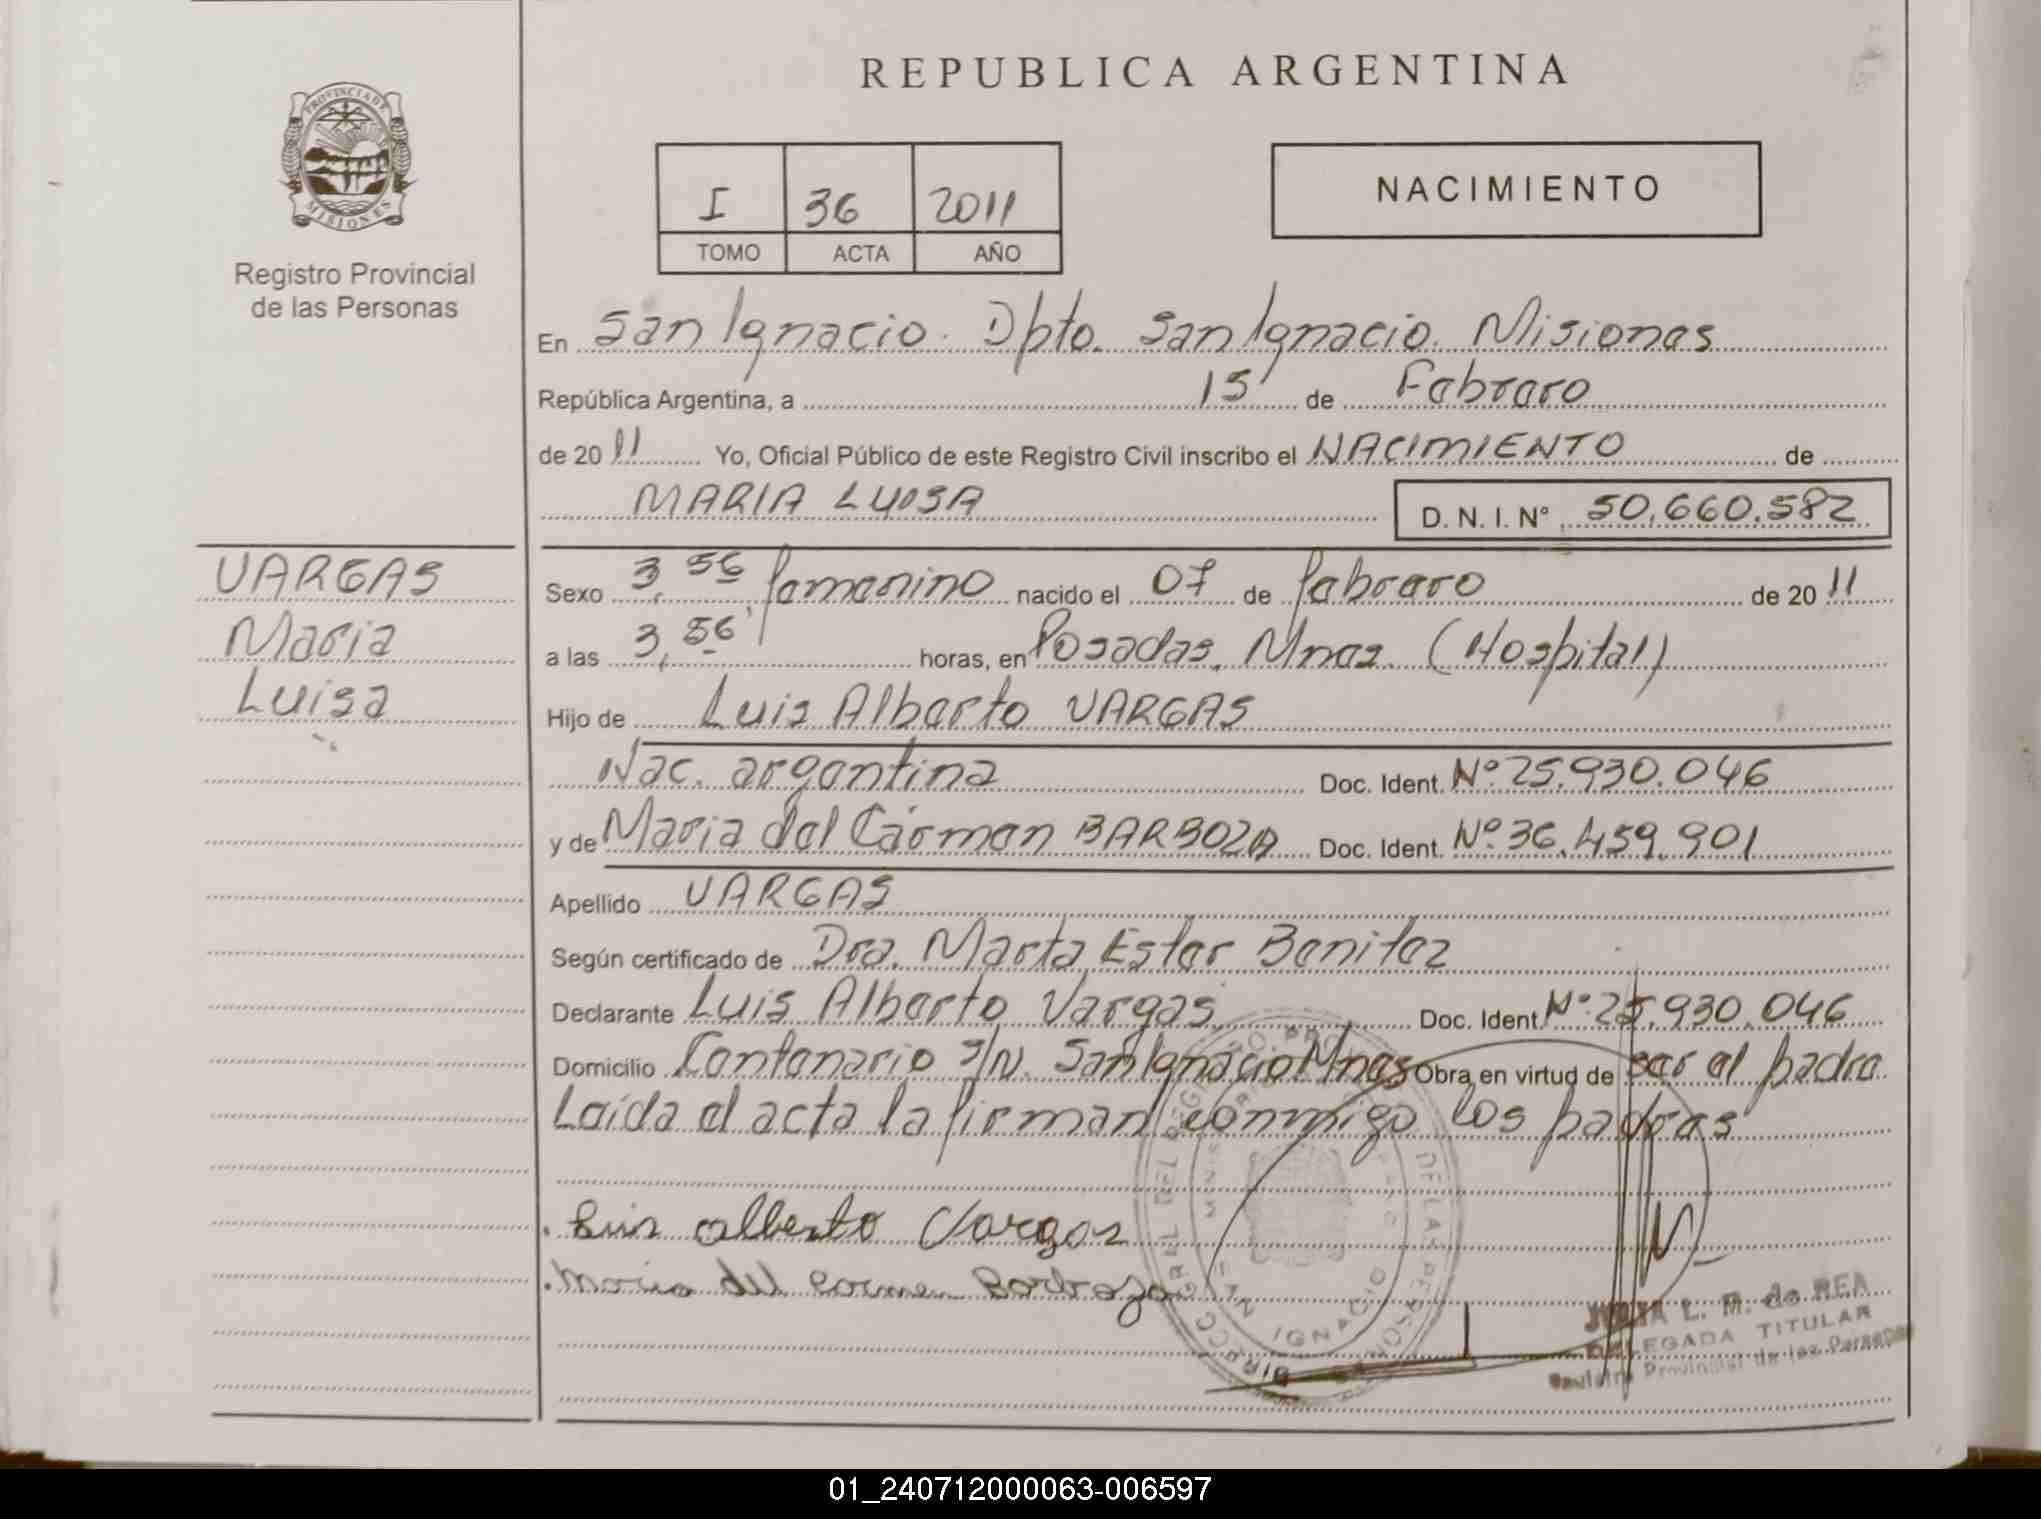 REPUBLICA ARGENTINA
PROVINCIA DE
MISIONES
Registro Provincial
de las Personas
I 36 2011
TOMO ACTA AÑO
NACIMIENTO
En San Ignacio. Dpto. San Ignacio. Misiones
República Argentina, a 15 de Febrero
de 2011 Yo, Oficial Público de este Registro Civil inscribo el NACIMIENTO de
MARIA LUISA D. N. I. Nº 50.660.582
VARGAS
Maria
Luisa
Sexo 3,56 femenino nacido el 07 de febrero de 2011
a las 3,56 horas, en Posadas, Mnes. (Hospital)
Hijo de Luis Alberto VARGAS
Nac. argentina Doc. Ident. Nº 25.930.046
y de Maria del Cármen BARBOZA Doc. Ident. Nº 36.459.901
Apellido VARGAS
Según certificado de Dra. Marta Ester Benitez
Declarante Luis Alberto Vargas Doc. Ident. Nº 25.930.046
Domicilio Centenario S/N. San Ignacio Mnes Obra en virtud de ser el padre
Leída el acta la firman conmigo los padres
Luis alberto Vargas
Maria del Carmen Barboza
SAN IGNACIO
L. M. de REA
DELEGADA TITULAR
Registro Provincial de las Personas
01_240712000063-006597